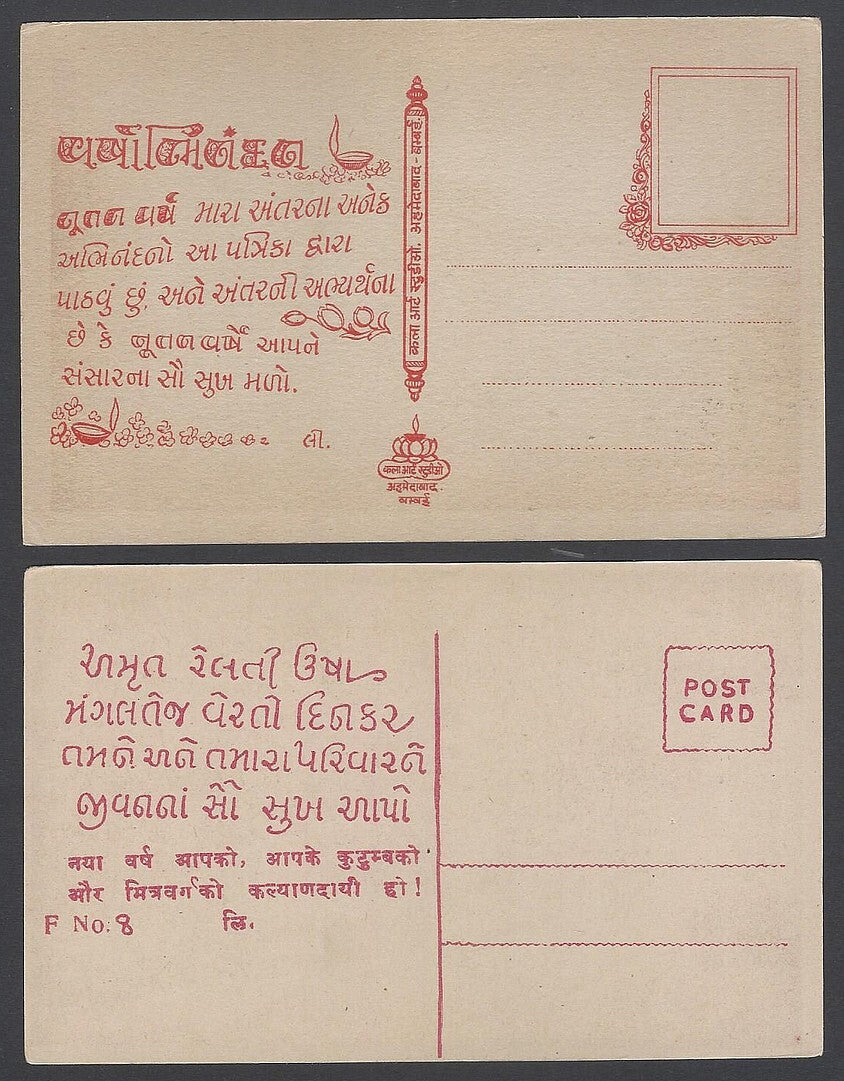 વર્ષાભિનંદન
નૂતન વર્ષ મારા અંતરના અનેક
અભિનંદનો આ પત્રિકા દ્વારા
પાઠવું છું. અને અંતરની અભ્યર્થના
છે કે નૂતન વર્ષે આપને
સંસારના સૌ સુખ મળો.
લી.
कला आर्ट स्टुडीओ. अहमेदाबाद - बम्बई.
कला आर्ट स्टुडीओ
अहमेदाबाद.
बम्बई
અમૃત રેલતી ઉષા
મંગલતેજ વેરતો દિનકર
તમને અને તમારા પરિવારને
જીવનનાં સૌ સુખ આપો
नया वर्ष आपको, आपके कुटुम्बको
और मित्रवर्ग को कल्याणदायी हो!
F No: 8
लि.
POST
CARD